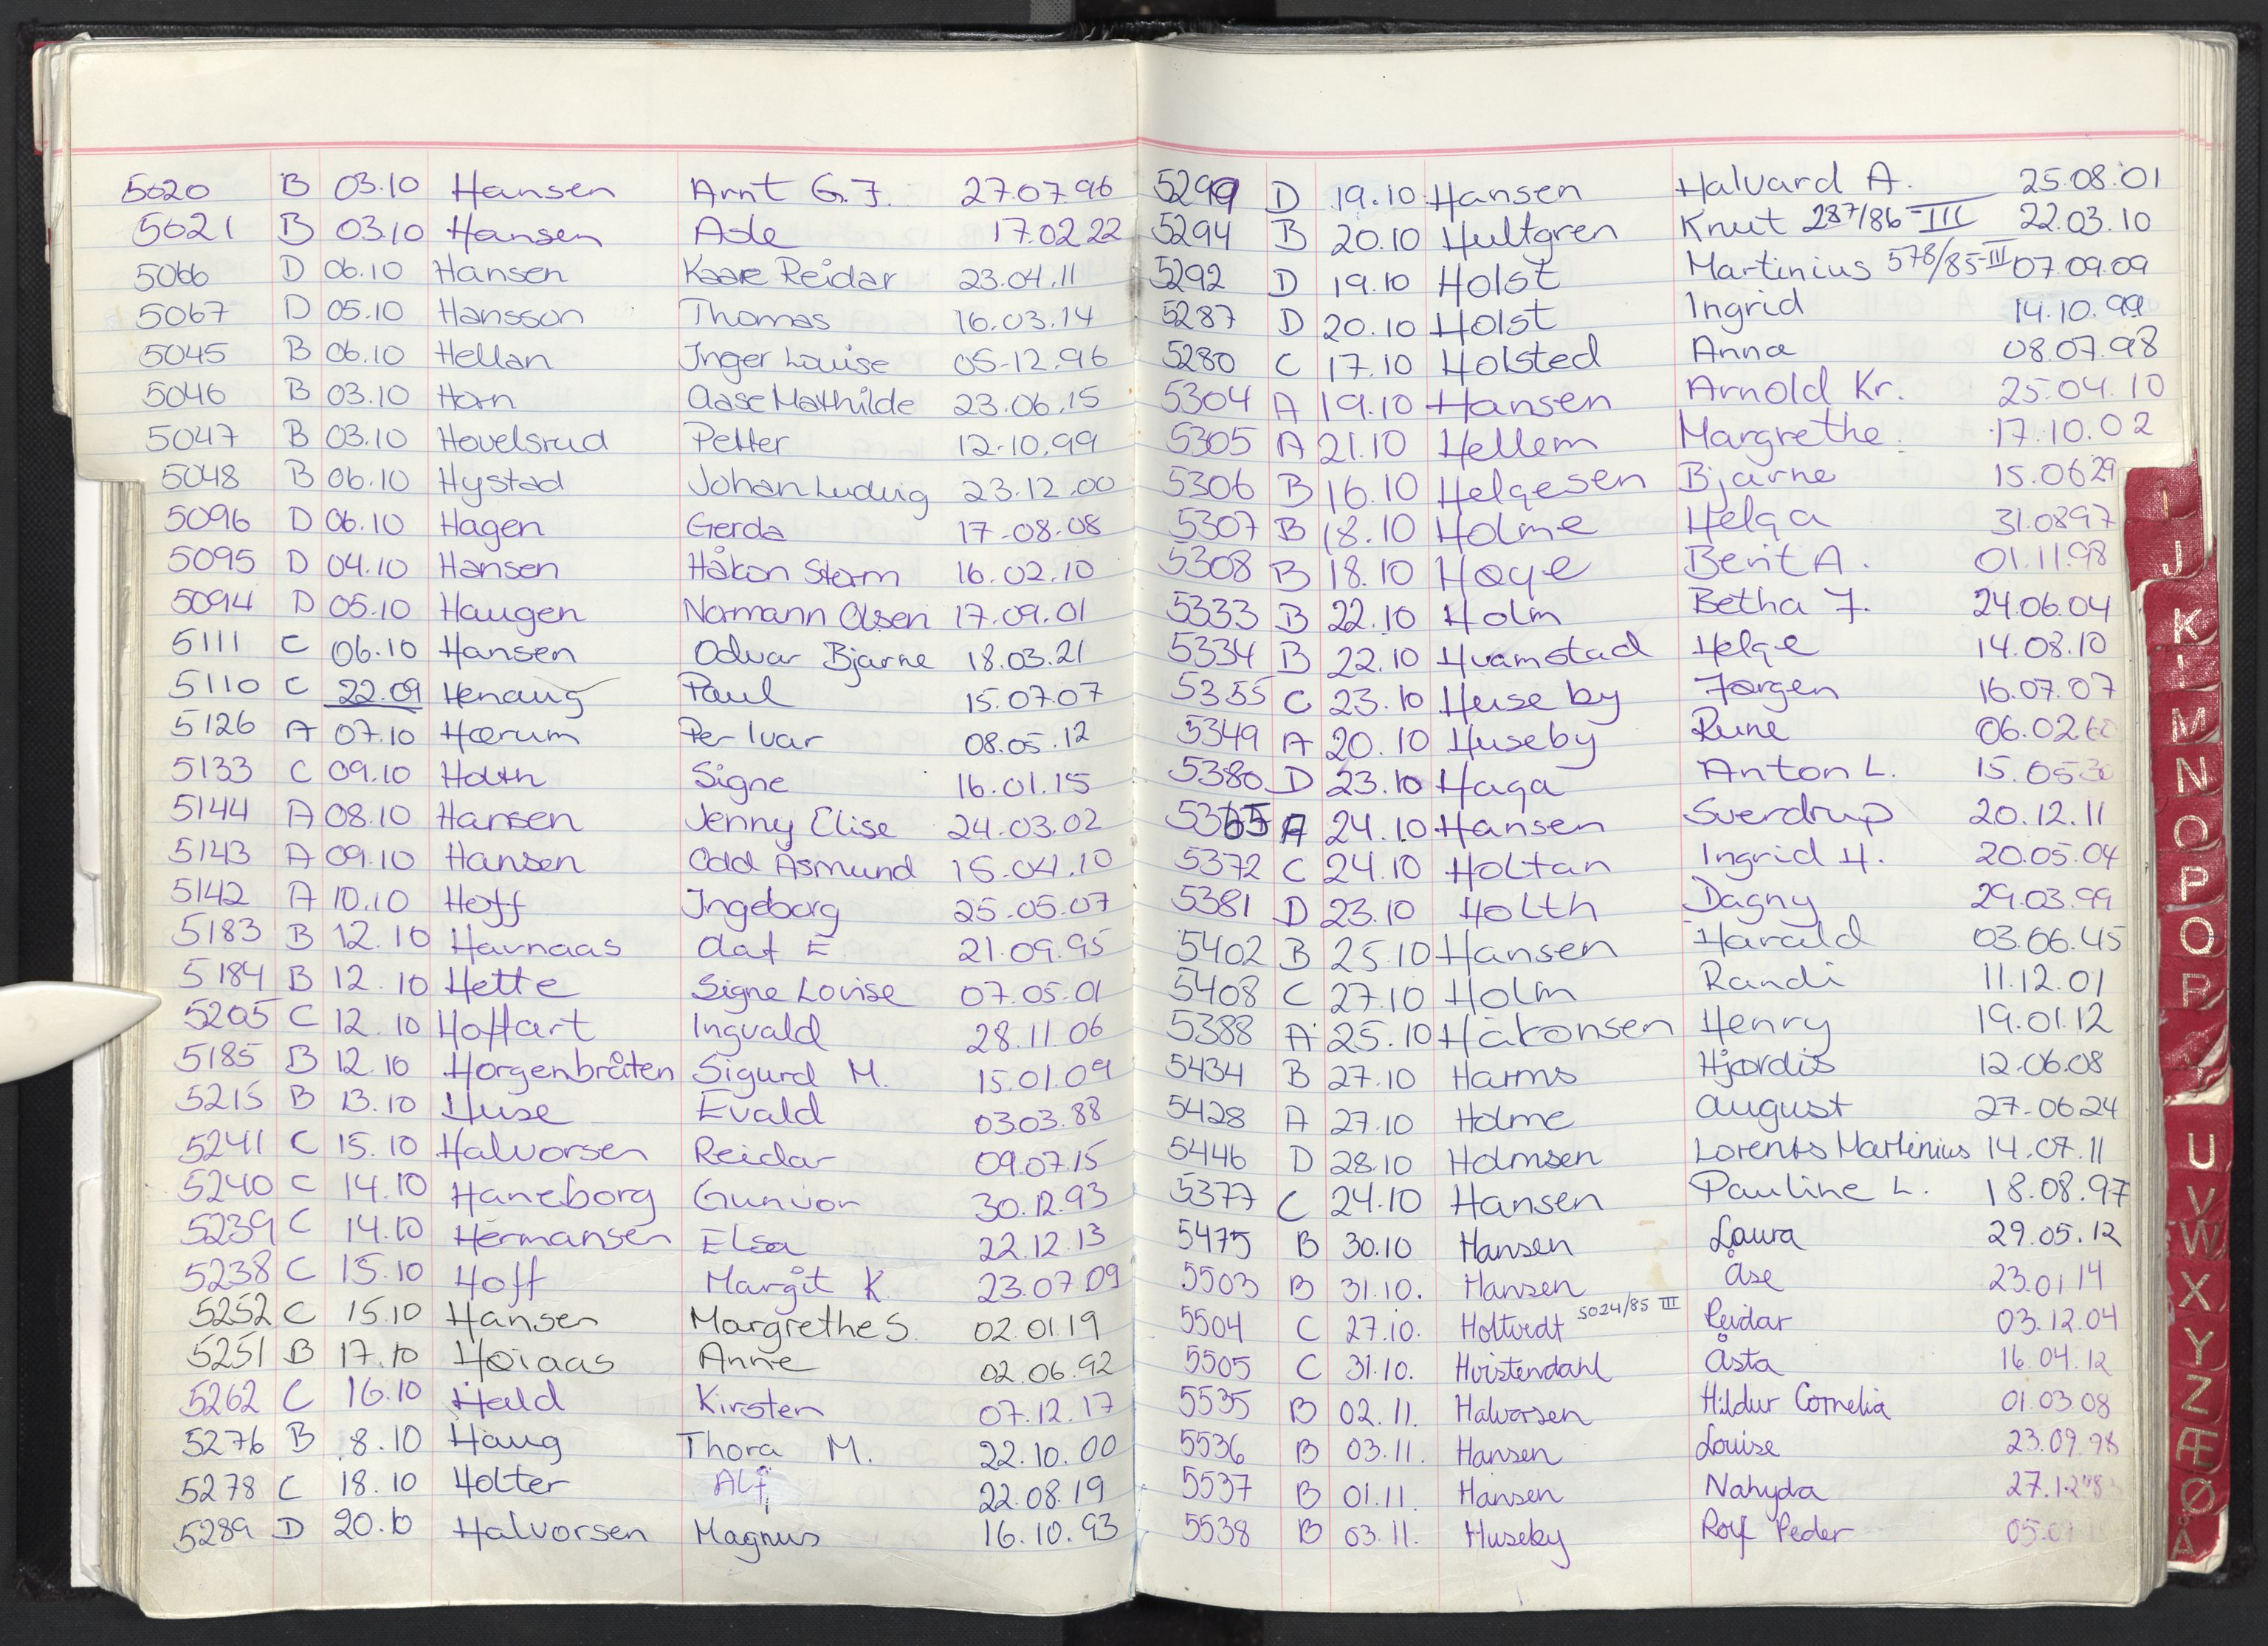 5020 B 03.10 Hansen Arnt G. J. 27.07.96
5021 B 03.10 Hansen Asle 17.02.22
5066 D 06.10 Hansen Kaare Reidar 23.04.11
5067 D 05.10 Hansson Thomas 16.03.14
5045 B 06.10 Hellan Inger Louise 05-12.96
5046 B 03.10 Horn Aase Mathilde 23.06.15
5047 B 03.10 Hovelsrud Petter 12-10.99
5048 B 06.10 Hystad Johan Ludvig 23.12.00
5096 D 06.10 Hagen Gerda 17-08-08
5095 D 04.10 Hansen Håkon Storm 16.02.10
5094 D 05.10 Haugen Normann Olsen 17.09.01
5111 C 06.10 Hansen Odvar Bjarne 18.03.21
5110 C 22.09 Henaug Paul 15.07.07
5126 A 07.10 Hærum Per Ivar 08.05.12
5133 C 09.10 Holth Signe 16.01.15
5144 A 08.10 Hansen Jenny Elise 24.03.02
5143 A 09.10 Hansen Odd Asmund 15.04.10
5142 A 10.10 Hoff Ingeborg 25.05.07
5183 B 12.10 Havnaas Olaf E 21.09.95
5184 B 12.10 Hette Signe Lovise 07.05.01
5205 C 12.10 Hoffart Ingvald 28.11.06
5185 B 12.10 Horgenbråten Sigurd M. 15.01.09
5215 B 13.10 Huse Evald 0303.88
5241 C 15.10 Halvorsen Reidar 09.07.15
5240 C 14.10 Haneborg Gunvor 30.12.93
5239 C 14.10 Hermansen Elsa 22.12.13
5238 C 15.10 Hoff Margit K. 23.07 09
5252 C 15.10 Hansen Margrethe S. 02.01.19
5251 B 17.10 Høiaas Anne 02.06.92
5262 C 16.10 Hald Kirsten 07.12.17
5276 B 8.10 Haug Thora M. 22.10.00
5278 C 18.10 Holter Alf 22.08.19
5289 D 20.10 Halvorsen Magnus 16.10.93
5299 D 19.10 Hansen Halvard A. 25.08.01
5294 B 20.10 Hultgren Knut 287/86-III 22.03.10
5292 D 19.10 Holst Martinius 578/85-III 07.09.09
5287 D 20.10 Holst Ingrid 14.10.99
5280 C 17.10 Holsted Anna 08.07.98
5304 A 19.10 Hansen Arnold Kr. 25.04.10
5305 A 21.10 Hellem Margrethe. 17.10.02
5306 B 16.10 Helgesen Bjarne 15.0629
5307 B 18.10 Holme Helga 31.0897
5308 B 18.10 Høye Berit A. 01.11.98
5333 B 22.10 Holm Betha J. 24.06.04
5334 B 22.10 Hvamstad Helge 14.08.10
5355 C 23.10 Huseby Jørgen 16.07.07
5349 A 20.10 Huseby Rune 06.0260
5380 D 23.10 Haga Anton L. 15.0530
5365 A 24.10 Hansen Sverdrup 20.12.11
5372 C 24.10 Holtan Ingrid H. 20.05.04
5381 D 23.10 Holth Dagny 29.03.99
5402 B 25.10 Hansen Harald 03.06.45
5408 C 27.10 Holm Randi 11.12.01
5388 A 25.10 Håkonsen Henry 19.01.12
5434 B 27.10 Harms Hjørdis 12.06.08
5428 A 27.10 Holme August 27-06 24
5446 D 28.10 Holmsen Lorents Martinius 14.07.11
5377 C 24.10 Hansen Pauline L. 18.08.97
5475 B 30.10 Hansen Laura 29.05.12
5503 B 31.10. Hansen Åse 23.01 14
5504 C 27.10. Holtvedt 5024/85 III Reidar 03.12.04
5505 C 31.10. Hvistendahl Åsta 16.04.12
5535 B 02.11. Halvorsen Hildur Cornelia 01.03.08
5536 B 03.11. Hansen Louise 23.09.98
5537 B 01.11. Hansen Nahyda
5538 B 03.11. Huseby Rolf Peder
I
J
K
L
M
N
O
P
Q
R
U
V
W
X
Y
Z
Æ
Ø
Å